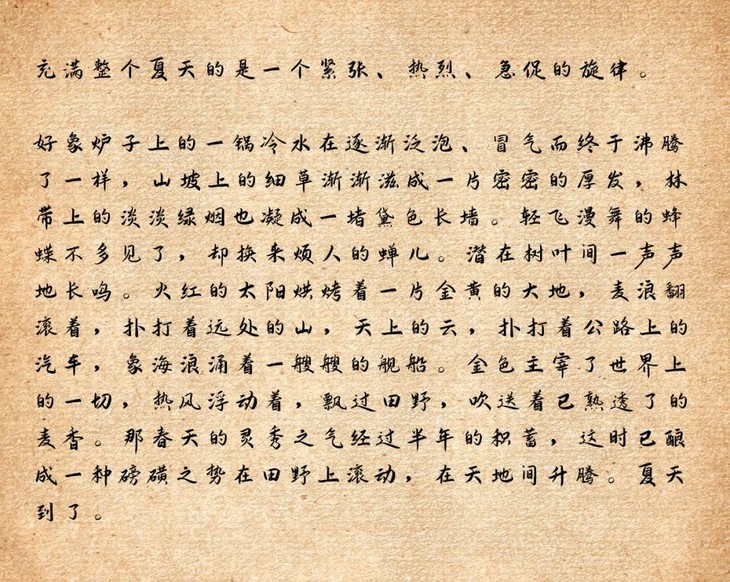 充满整个夏天的是一个紧张、热烈、急促的旋律。
好象炉子上的一锅冷水在逐渐泛泡、冒气而终于沸腾
了一样，山坡上的细草渐渐滋成一片密密的厚发，林
带上的淡淡绿烟也凝成一堵黛色长墙。轻飞漫舞的蜂
蝶不多见了，却换来烦人的蝉儿。潜在树叶间一声声
地长鸣。火红的太阳烘烤着一片金黄的大地，麦浪翻
滚着，扑打着远处的山，天上的云，扑打着公路上的
汽车，象海浪涌着一艘艘的舰船。金色主宰了世界上
的一切，热风浮动着，飘过田野，吹送着已熟透了的
麦香。那春天的灵秀之气经过半年的积蓄，这时已酿
成一种磅磺之势在田野上滚动，在天地间升腾。夏天
到了。